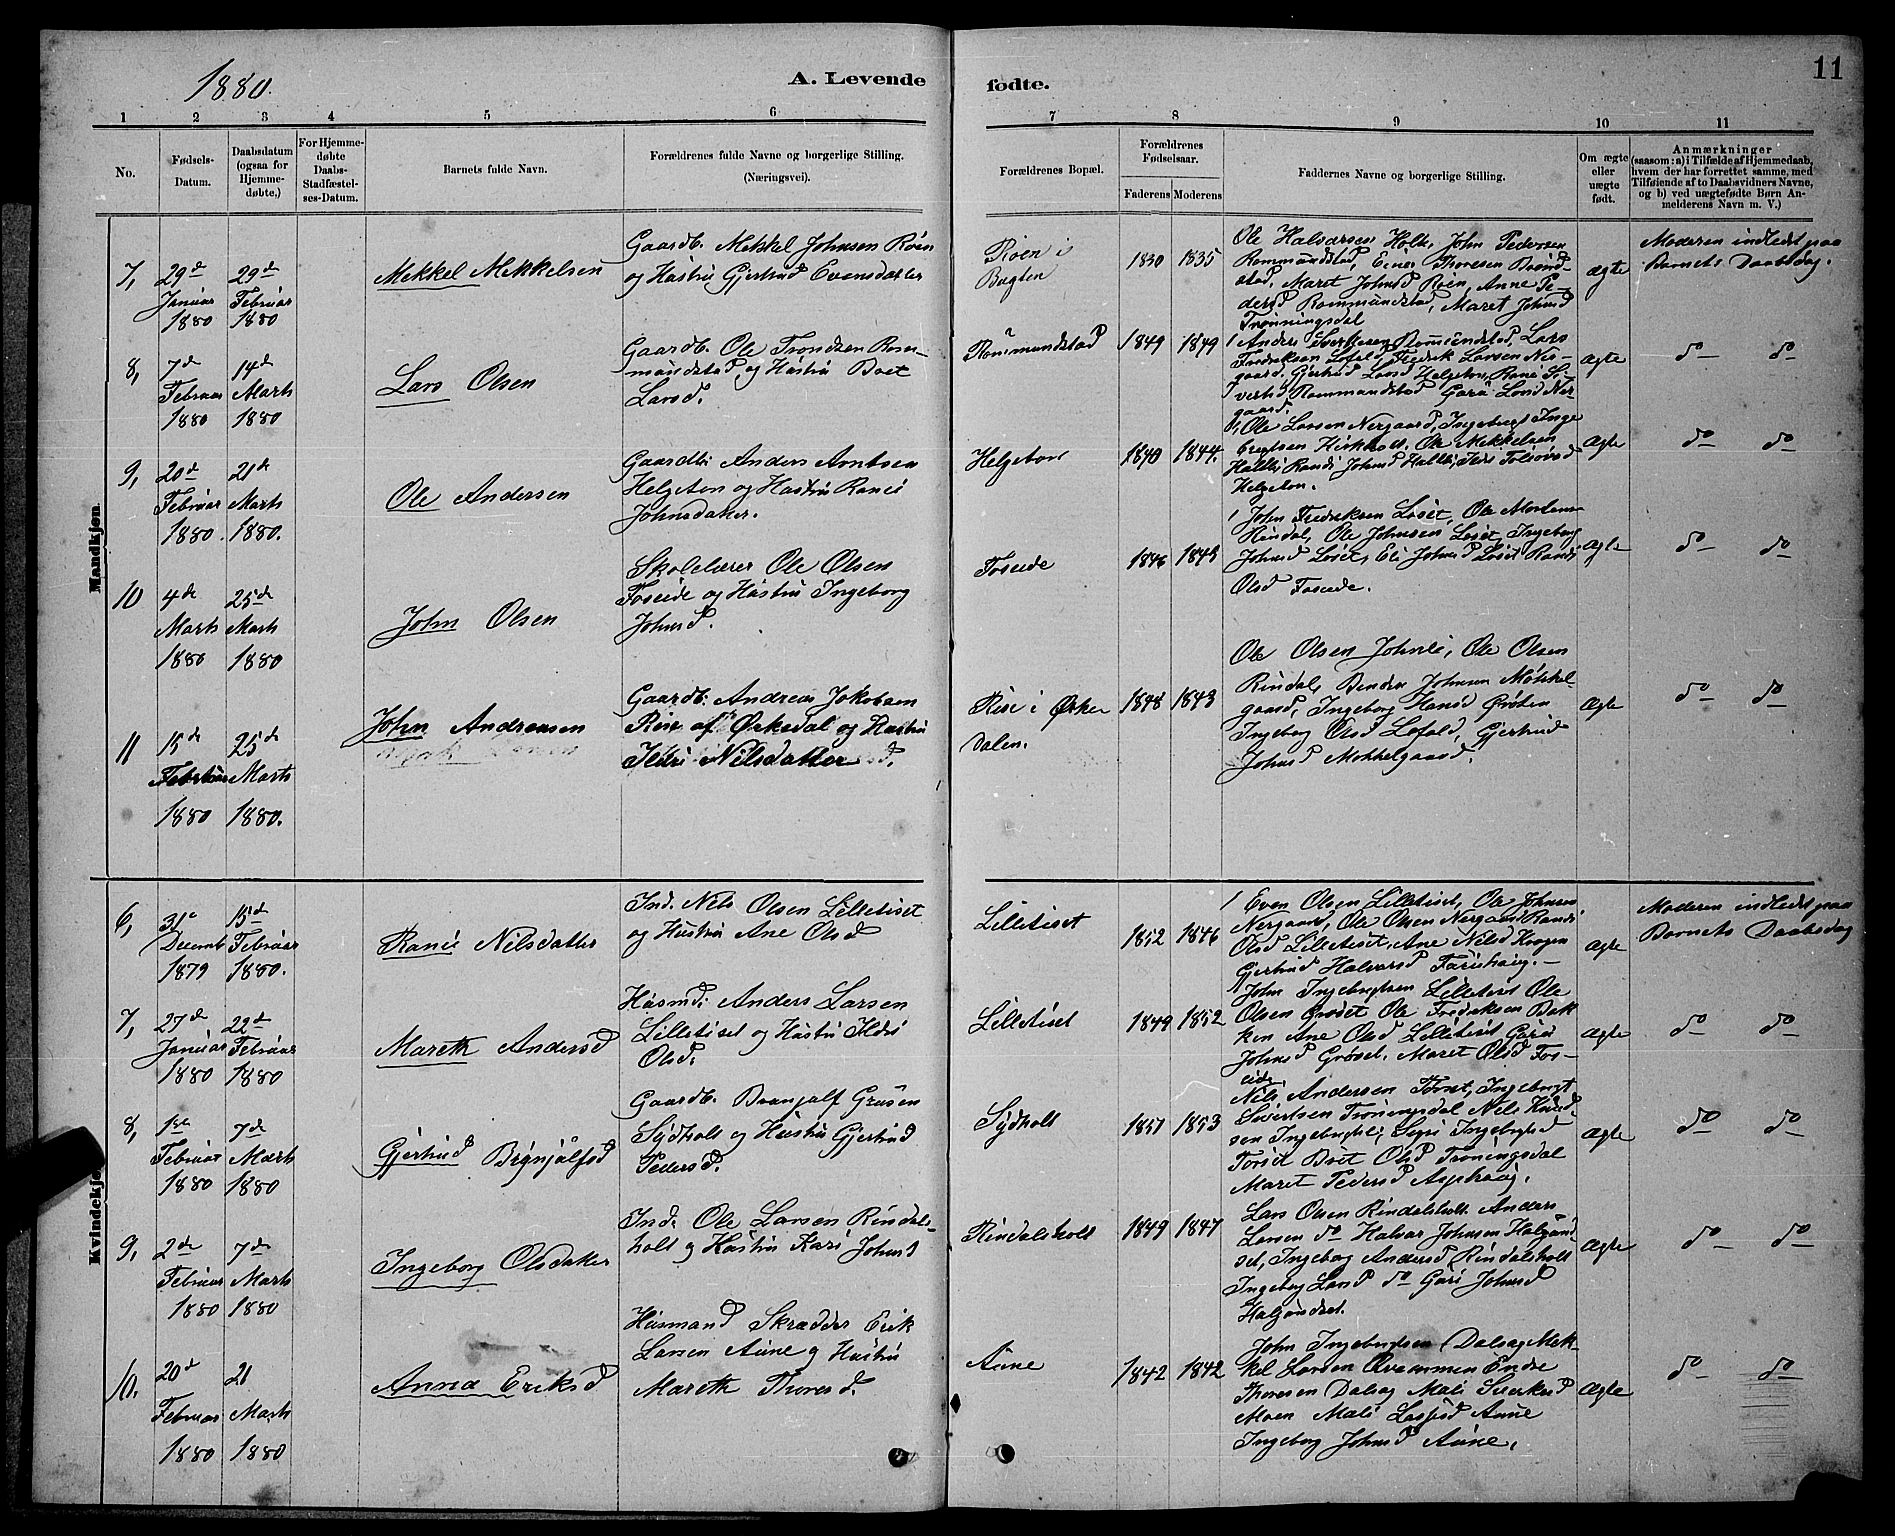 1880.
A. Levende
fødte.
11
1 2 3 4 5 6 7 8 9 10 11
No.
Fødsels-
Datum.
Daabsdatum
(ogsaa for
Hjemme-
døbte,)
For Hjemme-
døbte
Daabs-
Stadfæstel-
ses-Datum.
Barnets fulde Navn.
Forældrenes fulde Navne og borgerlige Stilling.
(Næringsvei).
Forældrenes Bopæl.
Forældrenes
Fødselsaar.
Faderens Moderens
Faddernes Navne og borgerlige Stilling.
Om ægte
eller
uægte
født.
Anmærkninger
(saasom: a) i Tilfælde af Hjemmedaab,
hvem der har forrettet samme, med
Tilføiende af to Daabsvidners Navne,
og b) ved uægtefødte Børn An-
melderens Navn m. V.)
Mandkjøn.
7,
29de
Januar
1880
29de
Februar
1880
Mekkel Mekkelsen
Gaardb. Mekkel Johnsen Roen
og Hustru Gjertrud Evensdatter
Roen i
1830 1835
Ole Halvorsen Holte, John Pedersen
Rommundstad, Einer Thoresen Brønd-
stad, Maret Johnsd Roen, Anne Pe-
dersd Rommundstad, Maret Johnsd
Trønningsdal
ægte
Moderen indledet paa
Barnets Daabsdag.
8,
7de
Februar
1880
14de
Marts
1880
Lars Olsen
Gaardb. Ole Trondsen Rom-
mundstad, og Hustru Bret
Larsd.
Rommundstad
1849 1849
Anders Sverkesen Rommundstad, Lars
Fredriksen Løfald, Fredrik Larsen Ner-
gaard. Gjertrud Larsd Helgeton, Rane Si-
vertsd Rommundstad Guru Larsd Ner-
gaard.
ægte
do do
9,
20de
Februar
1880.
21de
Marts
1880.
Ole Andersen
Gaardb: Anders Arntsen
Helgeton og Hustru Ranei
Johnsdatter.
Helgeton
1840 1844.
Ole Larsen Nergaard, Ingebregt Inge
bregtsen Kirkholt, Ole Mekkelsen
Haltli, Randi Johnsd Haltli,
Helgeton.
ægte
do do
10
4de
Marts
1880
25de
Marts
1880
John Olsen
Skolelærer Ole Olsen
Foseide og Hustru Ingeborg
Johnsd.
Foseide
1846 1843
John Fredriksen Løset, Ole Mortens
Rindal, Ole Johnsen Løset, Ingeborg
Johnsd Løset, Eli Johnsd Løset Randi
Olsd Foseide.
ægte
do do
11
15de
Februar
1880
25de
Marts
1880.
John Andreasen
Gaardb. Andreas Jakobsen
Rise af Ørkedal og Hustru
Ildri Nilsdatter
Rise i Ørke
Dalen.
1848 1843
Ole Olsen Johnli, Ole Olsen
Rindal, Johnsen Møkkel-
gaard, Ingeborg Hansd
Ingebog Olsd Løfald, Gjertrud
Johnsd Mokkelgaard.
ægte
do do
Kvindekjøn.
6,
31te
Decemb
1879
15de
Februar
1880.
Ranie Nilsdatter
Ind. Nils Olsen Lilletiset
og Hustru Ane Olsd
Lilletiset
1852 1846
Even Olsen Lilletiset, Ole Johnsen
Nergaard, Ole Olsen Nergaard Randi
Olsd Lilletiset, Ane Nilsd Krogen
Gjertrud Halvorsd Farishaug.
ægte
Moderen indledet paa
Barnets Daabsdag
7,
27de
Januar
1880
22de
Februar
1880
Mareth Andersd
Husmd: Anders Larsen
Lilletiset og Hustru Ildri
Olsd.
Lilletiset
1849 1852
John Ingebregtsen Lilletiset Ole
Olsen Grødet Ole Fredriksen Bek-
ken Ane Olsd Lilletiset Guru
Johnsd Grøset, Maret Olsd Fos-
eide,
ægte
do do
8,
1ste
Februar
1880
7de
Marts
1880
Gjertrud Brynjulfsd
Gaardb. Brynjulf
Sydholt og Hustru Gjertrud
Pedersd.
Sydholt
1853
Nils Andersen Torset, Ingebregt
Sivertsen Troningsdal Nils Knud-
sen Ingebrigtli, Sigri Ingebrigtsd
Torset Bret Olsd Troningsdal
Maret Pedersd Asphaug.
ægte
do do
9,
2de
Februar
1880
7de
Marts
1880
Ingeborg Olsdatter
Ind. Ole Larsen Rindals-
holt og Hustru Kari Johnsd
Rindalsholt
1849 1847
Lars Olsen Rindalsholt Anders
Larsen do Halvor Johnsen Halgund-
set, Ingeborg Andersd Rindalsholt
Ingebog Larsd do Guri Johnsd
Halgundset.
ægte
do do
10.
20de
Februar
1880
21
Marts
1880
Anna Eriksd
Husmand Skrædder Erik
Larsen Aune og Hustru
Mareth Thoresd.
Aune
1842 1842
John Ingebregtsen Dalsag Mek-
kel Larsen Qvammen Endre
Thoresen Dalsag Mali Sverkesd
Moen Mali Larsd Aune
Ingebog Johnsd Aune.
ægte
do do